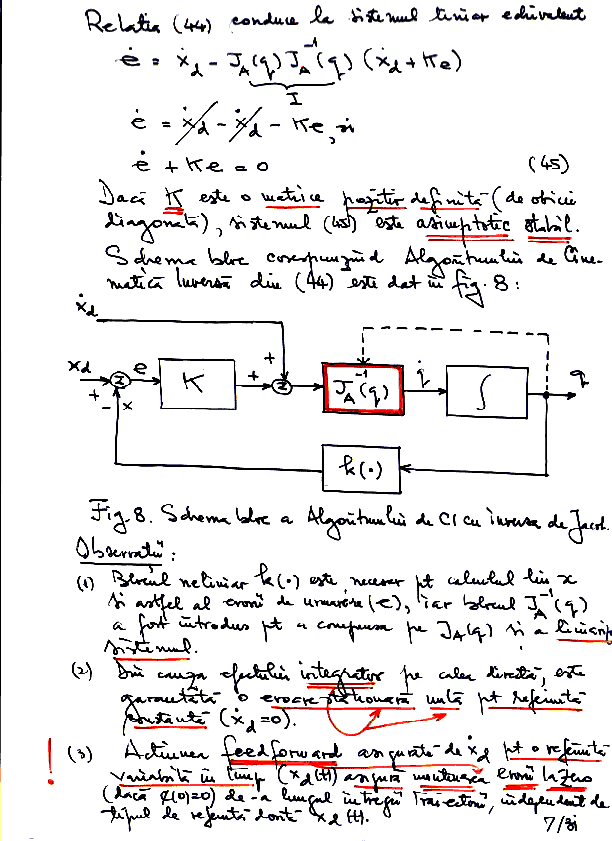 Relația (44) conduce la sistemul liniar echivalent
ė = ẋd - JA(q) JA⁻¹(q) (ẋd + Ke)
I
ė = ẋd - ẋd - Ke, și
ė + Ke = 0 (45)
Dacă K este o matrice pozitiv definită (de obicei
diagonală), sistemul (45) este asimptotic stabil.
Schema bloc corespunzînd Algoritmului de Cine-
matică Inversă din (44) este dat în fig. 8:
ẋd
xd e K + + JA⁻¹(q) q̇ ∫ q
+ - x
k(·)
Fig 8. Schema bloc a Algoritmului de CI cu inversa de Jacob.
Observații:
(1) Blocul neliniar k(·) este necesar pt calculul lui x
și astfel al erorii de urmărire (e), iar blocul JA⁻¹(q)
a fost introdus pt a compensa pe JA(q) și a liniariz
sistemul.
(2) Din cauza efectului integrator pe calea directă, este
garantată o eroare staționară nulă pt referință
constantă (ẋd=0).
! (3) Acțiunea feedforward asigurată de ẋd pt o referință
variabilă în timp (xd(t)) asigură menținerea erorii la zero
(dacă e(0)=0) de-a lungul întregii traiectorii, independent de
tipul de referință dorită xd(t).
7/31